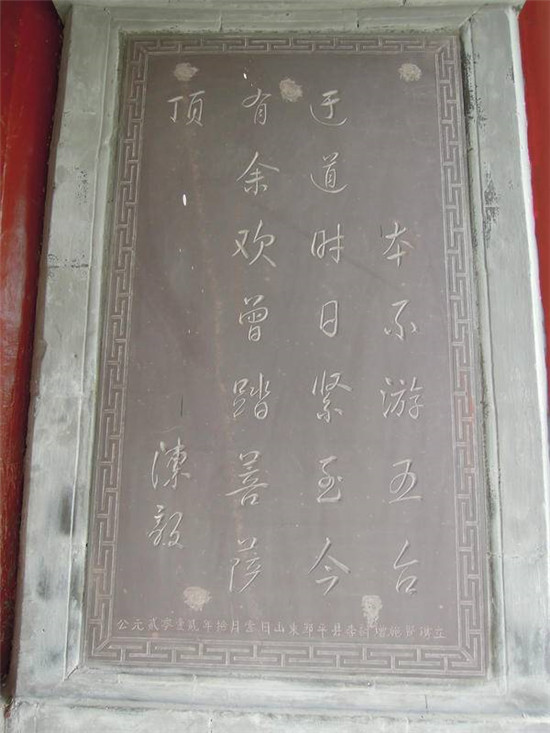 本不游五台
迂道时日紧至今
有余欢曾踏菩萨
顶
陳毅
公元贰零壹贰年拾月壹日山東邹平县李增施立